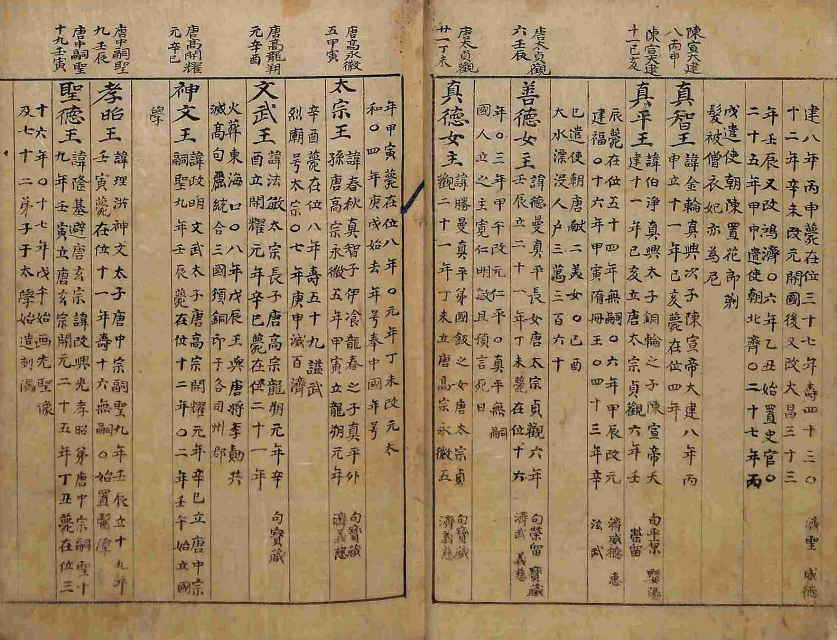 陳宣大建
八丙申
陳宣大建
十一己亥
唐太貞觀
六壬辰
唐太貞觀
廿一丁未
建八年丙申薨在位三十七年壽四十三〇 濟聖 威德
十二年辛未改元開國後又改大昌三十三
年壬辰又改鴻濟〇六年乙丑始置史官〇
二十五年甲申遣使朝北齊〇二十七年丙
戌遣使朝陳置花郎剃
髮被僧衣妃亦為尼
真智王 諱金輪真興次子陳宣帝大建八年丙
申立十一年己亥薨在位四年
真平王 諱伯淨真興太子銅輪之子陳宣帝大 向平原 嬰陽
建十一年己亥立唐太宗貞觀六年壬 榮留
辰薨在位五十四年無嗣〇六年甲辰改元 濟威德 惠
建福〇十六年甲寅隋冊王〇四十三年辛 法 武
巳遣使朝唐獻二美女〇己酉
大水漂没人户三萬三百六十
善德女主 諱德曼真平長女唐太宗貞觀六年 向榮留 寶藏
壬辰立二十一年丁未薨在位十六 濟武 義慈
年〇三年甲午改元仁平〇真平無嗣
國人立之主寬仁明敏且預言死日
真德女主 諱勝曼真平第國飯之女唐太宗貞 向寶藏
觀二十一年丁未立唐高宗永徽五 濟義慈
唐高永徽
五甲寅
唐高龍朔
元辛酉
唐高開耀
元辛巳
唐中嗣聖
九壬辰
唐中嗣聖
十九壬寅
年甲寅薨在位八年〇元年丁未改元太
和〇四年庚戌始去年号奉中國年号
太宗王 諱春秋真智子伊飡龍春之子真平外 向寶藏
孫唐高宗永徽五年甲寅立龍朔元年 濟義慈
辛酉薨在位八年壽五十九謚武
烈廟号太宗〇七年庚申滅百濟
文武王 諱法敏太宗長子唐高宗龍朔元年辛 向寶藏
酉立開耀元年辛巳薨在位二十一年
火葬東海口〇八年戊辰王與唐將李勣共
滅高句麗統合三國頒銅印于各司州郡
神文王 諱政明文武太子唐高宗開耀元年辛巳立唐中宗
嗣聖九年壬辰薨在位十二年〇二年壬午始立國
學
孝昭王 諱理洪神文太子唐中宗嗣聖九年壬辰立十九年
壬寅薨在位十一年壽十六無嗣〇始置醫學
聖德王 諱隆基避唐玄宗諱改興光孝昭第唐中宗嗣聖十
九年壬寅立唐玄宗開元二十五年丁丑薨在位三
十六年〇十七年戊午始画先聖像
及七十二弟子于太學始造刻漏